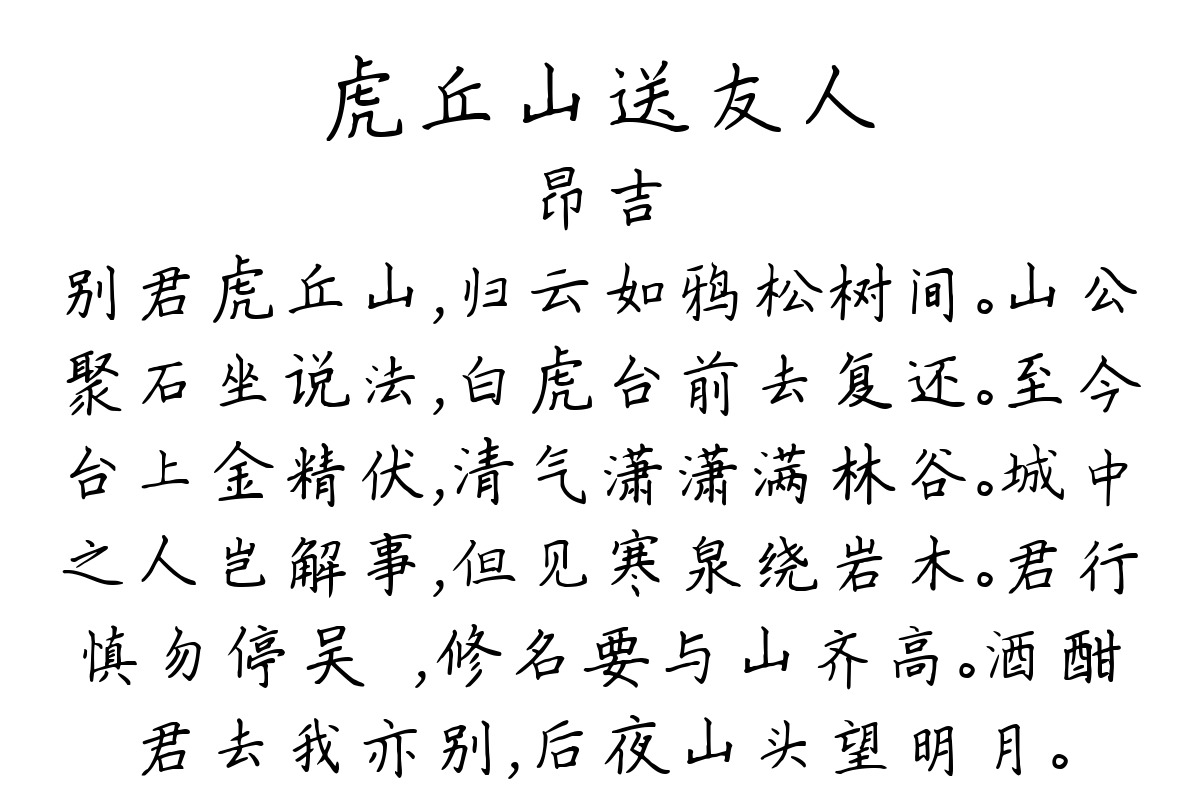 虎丘山送友人
昂吉
别君虎丘山,归云如鸦松树间。山公
聚石坐说法,白虎台前去复还。至今
台上金精伏,清气潇潇满林谷。城中
之人岂解事,但见寒泉绕岩木。君行
慎勿停吴 ,修名要与山齐高。酒酣
君去我亦别,后夜山头望明月。